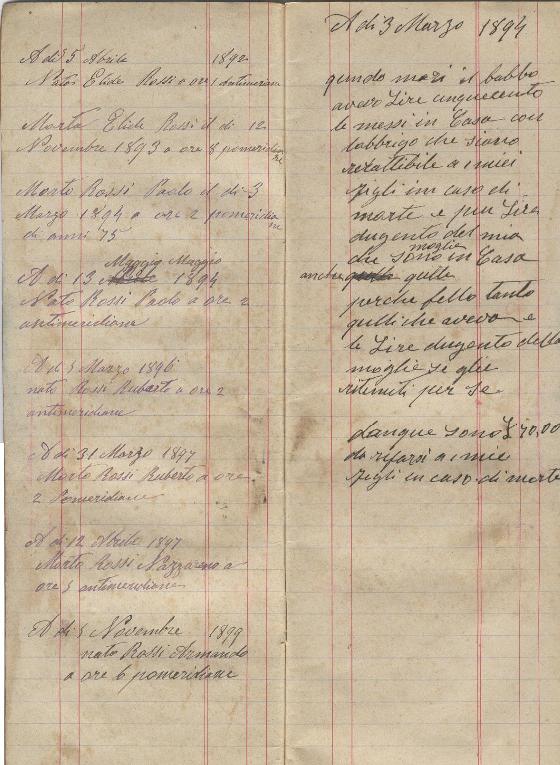 A di 5 Abrile 1892
Nato Elide Rossi a ore 1 antimeridiane
Morta Elide Rossi il di 12
Novembre 1893 a ore 8 pomeridiane
Morto Rossi Paolo il di 3
Marzo 1894 a ore 2 pomeridiane
di anni 75
Maggio Maggio
A di 13 1894
Nato Rossi Paolo a ore 2
antimeridiane
A di 5 Marzo 1896
nato Rossi Ruberto a ore 2
antimeridiane
A di 31 Marzo 1897
Morto Rossi Ruberto a ore
2 Pomeridiane
A di 12 Abrile 1897
Morto Rossi Nazzareno a
ore 5 antimeridiane
A di 5 Novembre 1899
nato Rossi Armando
a ore 6 pomeridiane
A di 3 Marzo 1894
qundo mori il babbo
avevo Lire cinquecento
le messi in Casa con
lobbrigo che siano
a miei
figli in caso di
morte e piu Lire
dugento del mia
moglie
che sono in Casa
anche quelle
perche fello tanto
quelli che avevo e
le Lire dugento della
moglie se glie
ritenuti per se
danque sono £ 70,00
da rifarsi a mie
figli in caso di morte